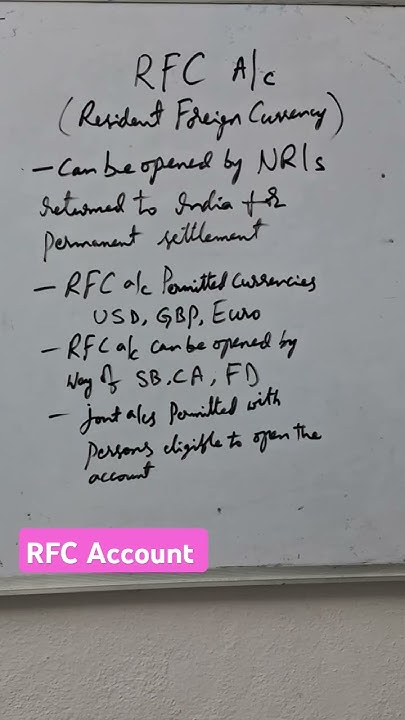 RFC A/c
(Resident Foreign Currency)
- Can be opened by NRIs
returned to India for
permanent settlement
- RFC a/c Permitted Currencies
USD, GBP, Euro
- RFC a/c can be opened by
way of SB, CA, FD
- Joint a/cs Permitted with
persons eligible to open the
account
RFC Account